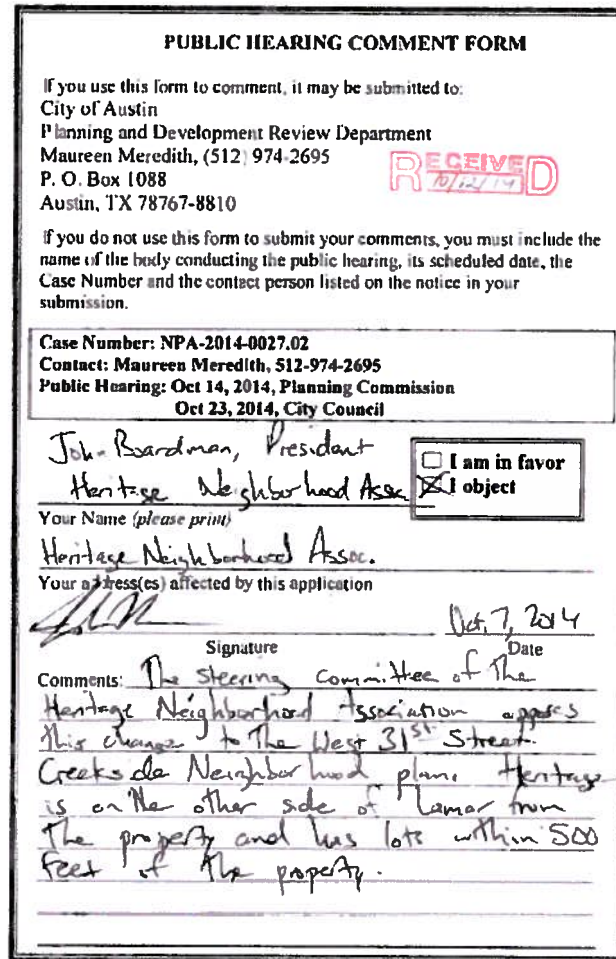 PUBLIC HEARING COMMENT FORM
If you use this form to comment, it may be submitted to:
City of Austin
Planning and Development Review Department
Maureen Meredith, (512) 974-2695
P. O. Box 1088
Austin, TX 78767-8810
RECEIVED
10/12/14
If you do not use this form to submit your comments, you must include the
name of the body conducting the public hearing, its scheduled date, the
Case Number and the contact person listed on the notice in your
submission.
Case Number: NPA-2014-0027.02
Contact: Maureen Meredith, 512-974-2695
Public Hearing: Oct 14, 2014, Planning Commission
Oct 23, 2014, City Council
John Boardman, President
Heritage Neighborhood Assoc
I am in favor
I object
Your Name (please print)
Heritage Neighborhood Assoc.
Your address(es) affected by this application
Oct. 7, 2014
Signature Date
Comments: The Steering committee of The
Heritage Neighborhood Association opposes
this change to The West 31st Street
Creekside Neighborhood plan. Heritage
is on the other side of Lamar from
The property and has lots within 500
Feet of the property.